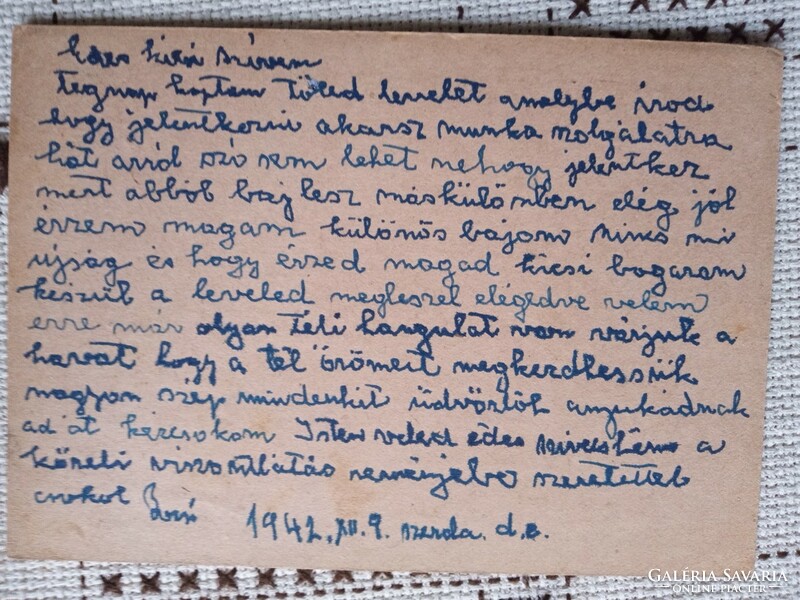 Édes kicsi szivem
Tegnap kaptam Tőled levelet amelybe irod
hogy jelentkezni akarsz munka szolgálatra
hát arról szó sem lehet nehogy jelentkez
mert abból baj lesz máskülömben elég jól
érzem magam különös bajom nincs mi
ujság és hogy érzed magad kicsi bogaram
készül a leveled megleszel elégedve velem
erre már olyan téli hangulat van várjuk a
havat hogy a tél örömeit megkezdhessük
nagyon szép mindenkit üdvözlök anyukádnak
ad át kézcsokom Isten veled édes szivecském a
közeli viszontlátás reményjebe szeretettel
csokol 1942. XII. 9. szerda. d.e.
GALÉRIA SAVARIA
ONLINE PIACTÉR